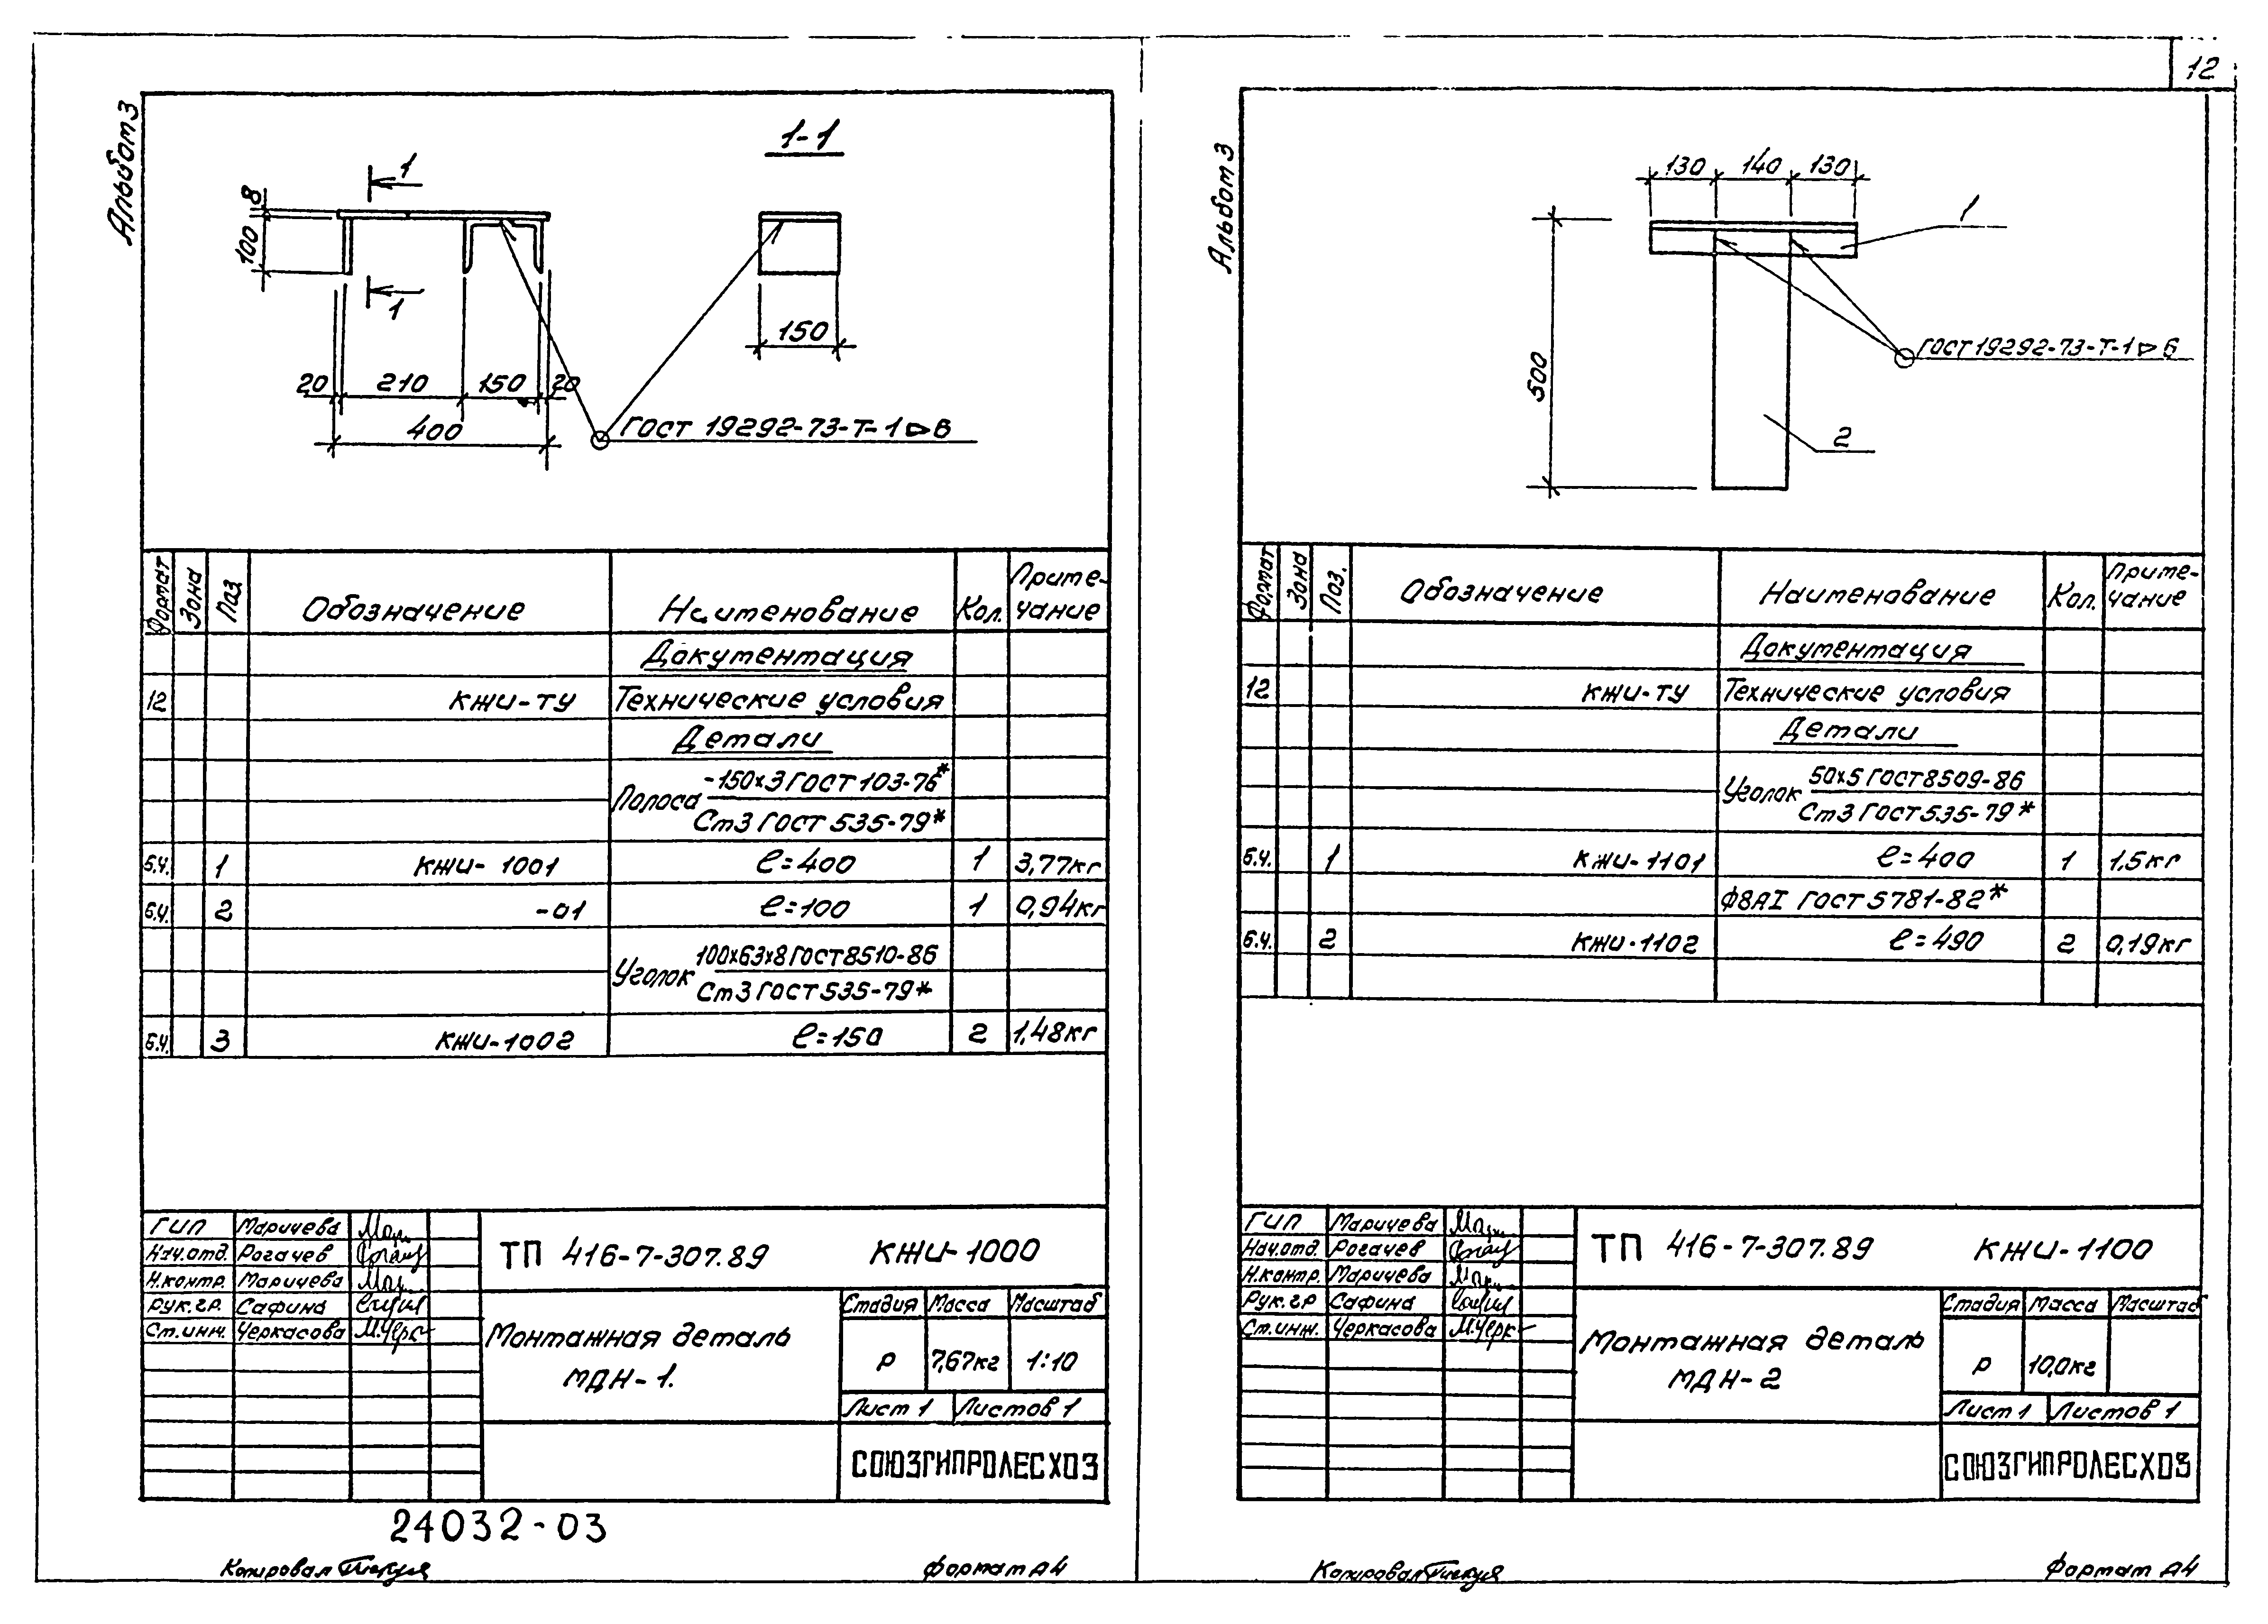 12
Альбом 3
1-1
1
1
8
100
20 210 150 20
400
150
ГОСТ 19292-73-Т-1 ▷ 6
Формат Зона Поз. Обозначение Наименование Кол. Приме-
чание
Документация
12 КЖИ-ТУ Технические условия
Детали
Полоса -150х3 ГОСТ 103-76*
Ст3 ГОСТ 535-79*
Б.Ч. 1 КЖИ-1001 ℓ=400 1 3,77кг
Б.Ч. 2 -01 ℓ=100 1 0,94кг
Уголок 100х63х8 ГОСТ 8510-86
Ст3 ГОСТ 535-79*
Б.Ч. 3 КЖИ-1002 ℓ=150 2 1,48кг
ГИП Маричева
Нач.отд. Рогачев
Н.контр. Маричева
Рук.гр. Сафина
Ст.инж. Черкасова
ТП 416-7-307.89 КЖИ-1000
Монтажная деталь
МДН-1.
Стадия Масса Масштаб
Р 7,67кг 1:10
Лист 1 Листов 1
СОЮЗГИПРОЛЕСХОЗ
24032-03
Копировал
Формат А4
Альбом 3
130 140 130
500
1
2
ГОСТ 19292-73-Т-1 ▷ 6
Формат Зона Поз. Обозначение Наименование Кол. Приме-
чание
Документация
12 КЖИ-ТУ Технические условия
Детали
Уголок 50х5 ГОСТ 8509-86
Ст3 ГОСТ 535-79*
Б.Ч. 1 КЖИ-1101 ℓ=400 1 1,5кг
Ф8АI ГОСТ 5781-82*
Б.Ч. 2 КЖИ-1102 ℓ=490 2 0,19кг
ГИП Маричева
Нач.отд. Рогачев
Н.контр. Маричева
Рук.гр Сафина
Ст.инж. Черкасова
ТП 416-7-307.89 КЖИ-1100
Монтажная деталь
МДН-2
Стадия Масса Масштаб
Р 10,0кг
Лист 1 Листов 1
СОЮЗГИПРОЛЕСХОЗ
Копировал
Формат А4